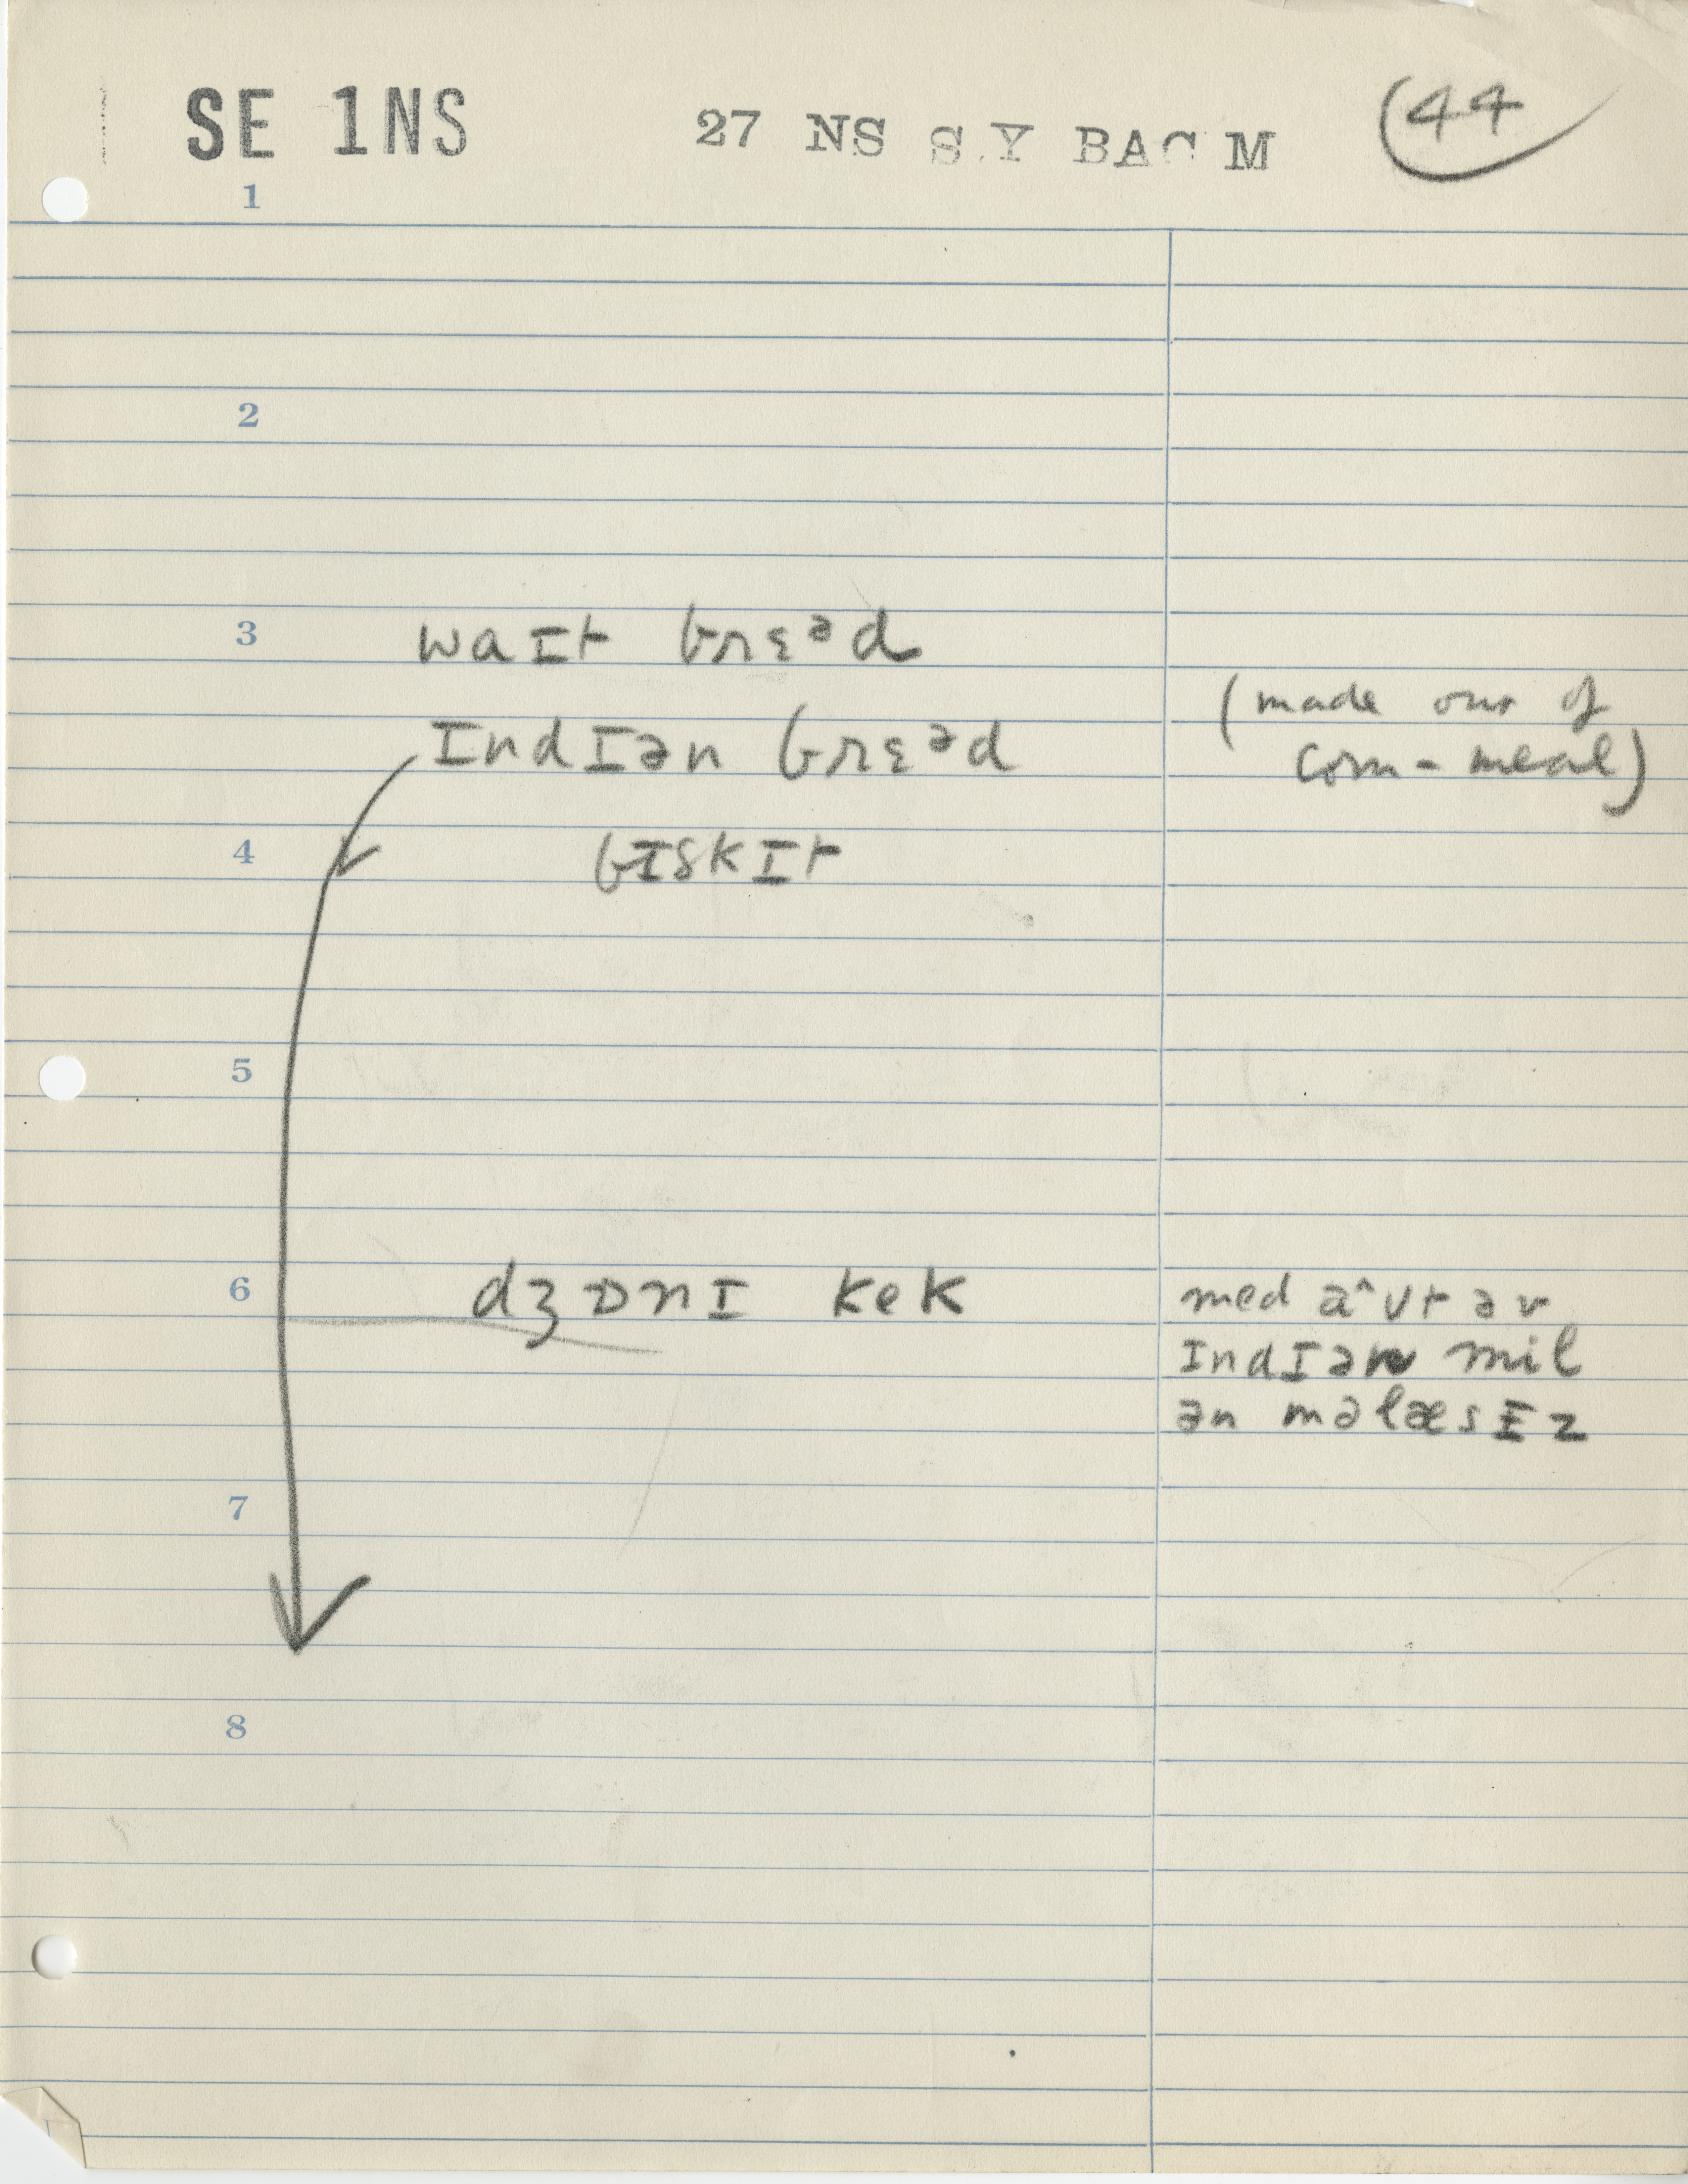 SE 1NS 27 NS S.Y BAC M 44
1
2
3 waɪt brɛᵊd
ɪndɪən brɛᵊd (made out of
corn-meal)
4 bɪskɪt
5
6 dʒɒnɪ kek med a^ʊt əv
ɪndɪən mil
ən məlæsɪz
7
8